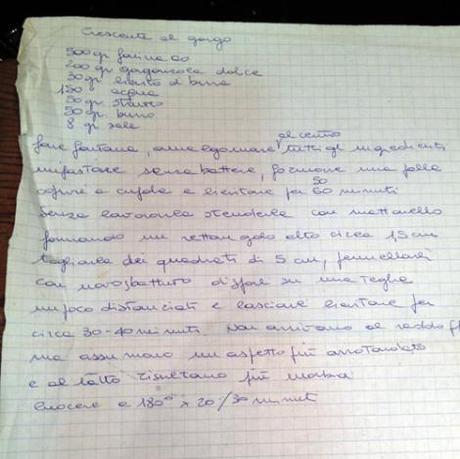 Crescente al gorgo
500 gr farina 00
200 gr gorgonzola dolce
30 gr lievito di birra
150 acqua
50 gr strutto
50 gr burro
8 gr sale
al centro
fare fontana, amalgamare tutti gli ingredienti
impastare senza battere, formare una palla
50
coprire a cupola e lievitare per 60 minuti
Senza lavorarla stenderla con mattarello
formando un rettangolo alto circa 1,5 cm
tagliare dei quadrati di 5 cm, pennellarli
con uovo sbattuto disporre su una teglia
un poco distanziati e lasciare lievitare per
circa 30-40 minuti. Non arrivano al raddopp
ma assumono un aspetto più arrotondato
e al tatto risultano più morbidi
Cuocere a 180° x 20/30 minuti